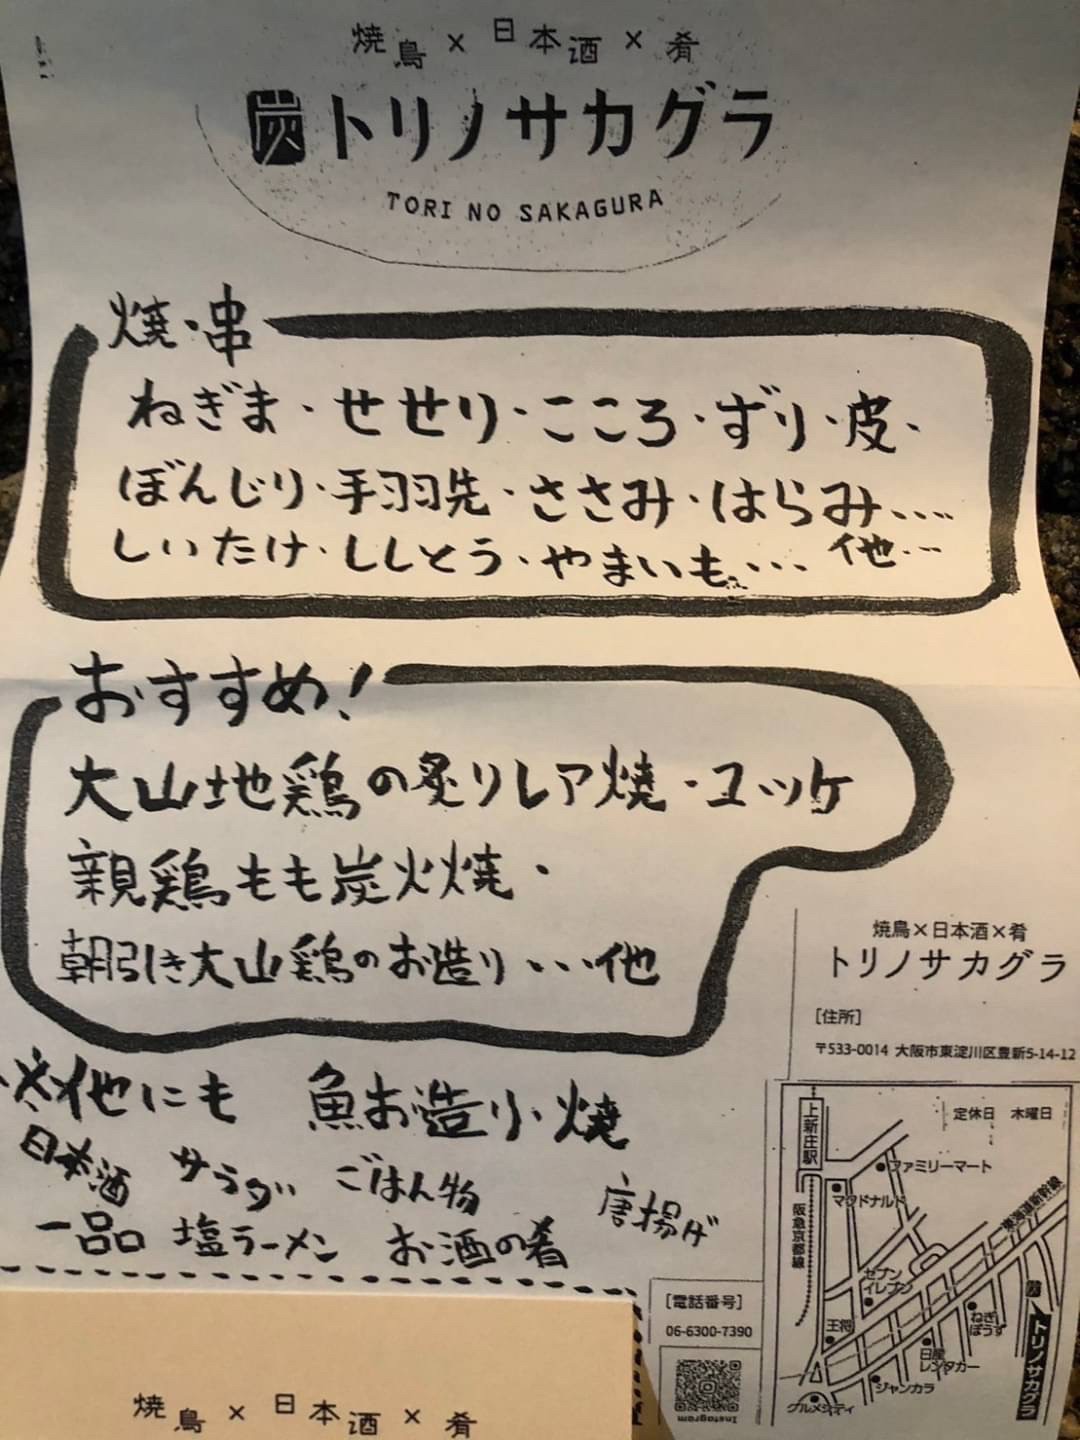 焼鳥×日本酒×肴
炭トリノサカグラ
TORI NO SAKAGURA
焼・串
ねぎま・せせり・こころ・ずり・皮・
ぼんじり・手羽先・ささみ・はらみ・・・
しいたけ・ししとう・やまいも・・・他・・・
おすすめ!
大山地鶏の炙りレア焼・ユッケ
親鶏もも炭火焼・
朝引き大山鶏のお造り・・・他
※他にも 魚お造り・焼
日本酒 サラダ ごはん物 唐揚げ
一品 塩ラーメン お酒の肴
焼鳥×日本酒×肴
トリノサカグラ
[住所]
〒533-0014 大阪市東淀川区豊新5-14-12
定休日 木曜日
上新庄駅
ファミリーマート
マクドナルド
東海道新幹線
阪急京都線
セブン
イレブン
王将
ねぎ
ぼうず
日産
レンタカー
ジャンカラ
グルメシティ
炭トリノサカグラ
[電話番号]
06-6300-7390
Instagram
焼鳥×日本酒×肴